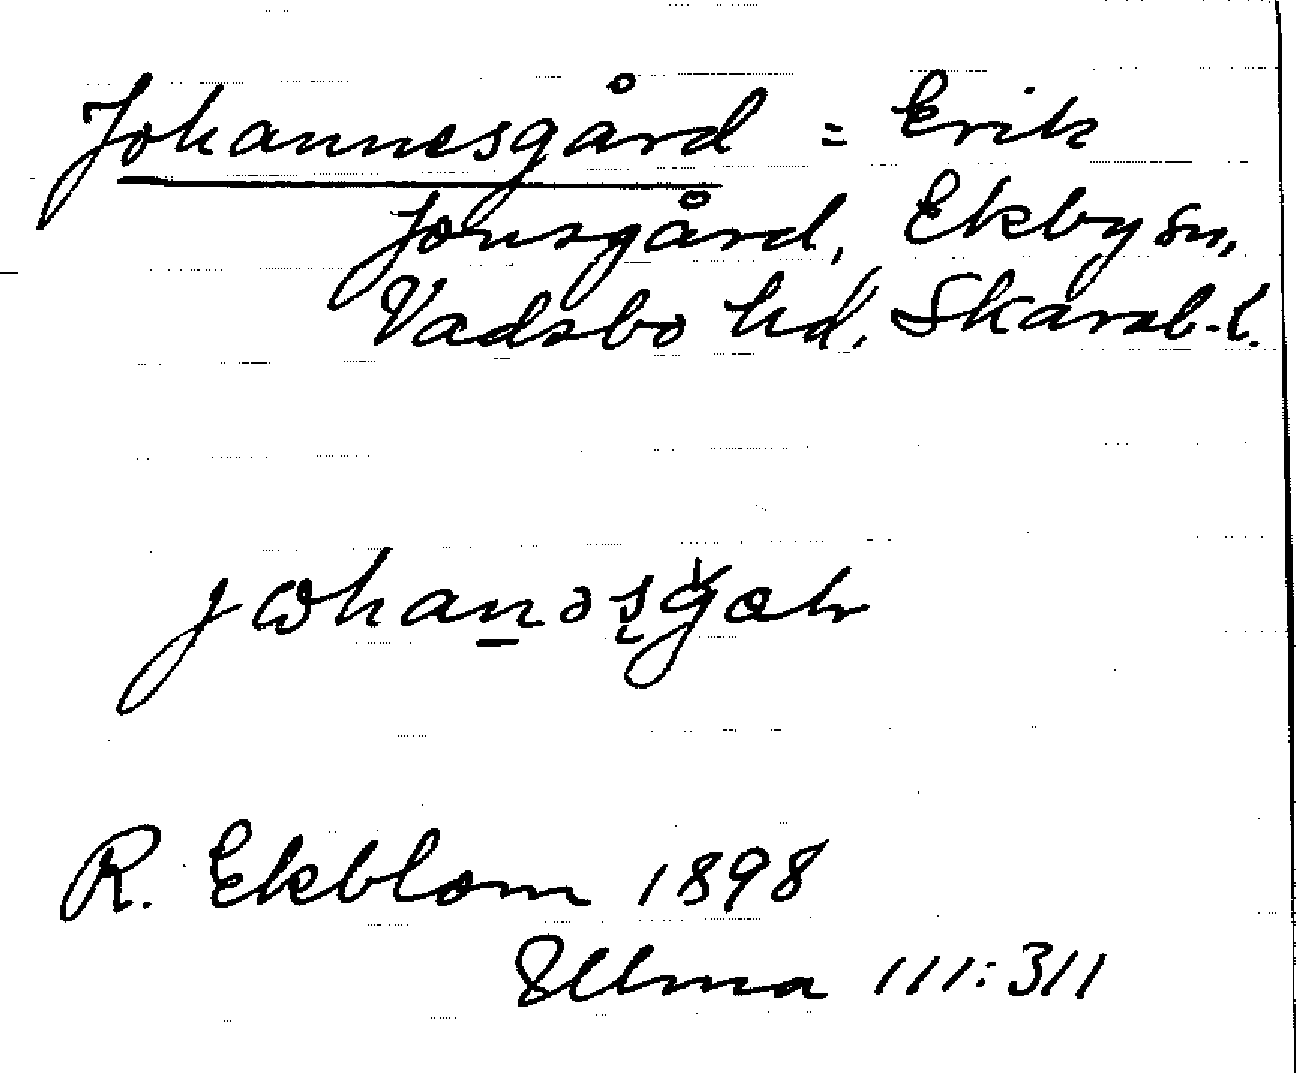 Johannesgård = Erik
Jonsgård, Ekby sn,
Vadsbo hd, Skarab.l.
R. Ekblom 1898
Ullma 111:311